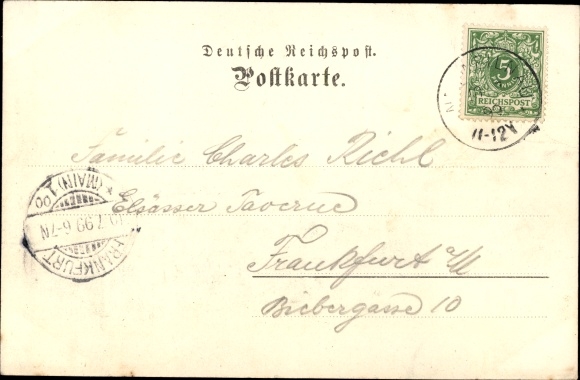 Deutsche Reichspost.
Postkarte.
5
PFENNIG
REICHSPOST
11-12V
Familie Charles Riehl
Elsässer Taverne
Frankfurt a/M
Biebergasse 10
FRANKFURT
(MAIN) 1
7 99 6-7N